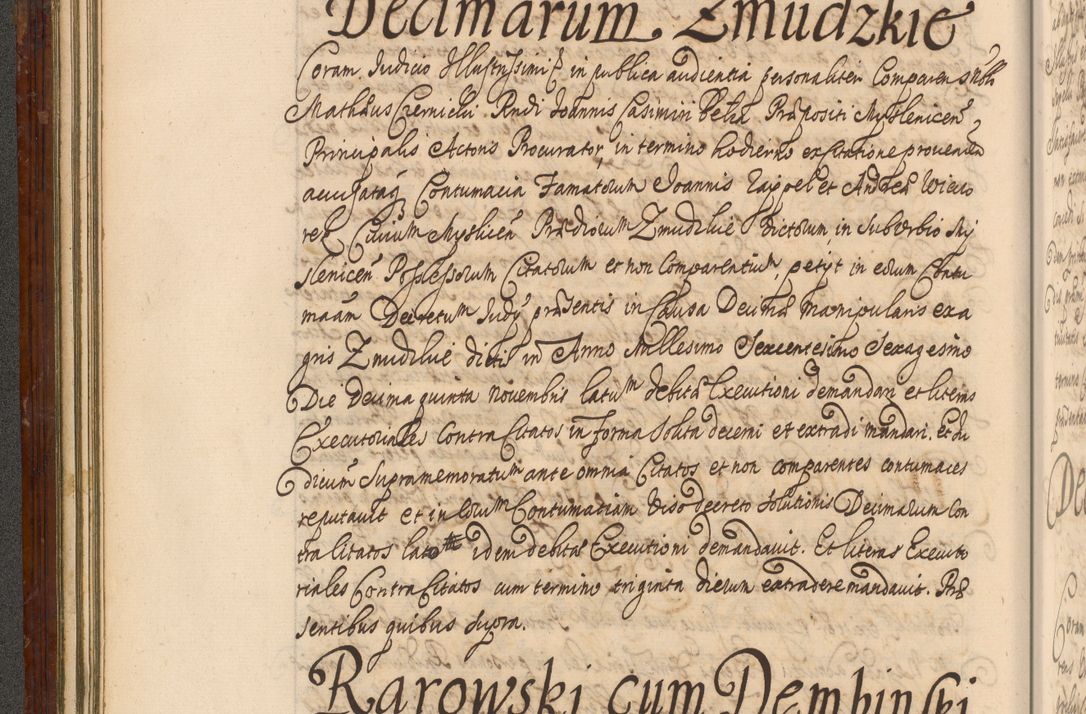 Decimarum Zmudzkie
Coram Judicio Illustrissimi in publica audientia personaliter Comparens Nob
Mathæus Czernicki Rndi Joannis Casimiri Præpositi Myslenicen
Principalis Actoris Procurator, in termino hodierno ex Citatione proveniēn
accusataq Contumacia Famatorum Joannis et Andreæ Wicio
rek Civium Myslicen Prædiorum Zmudzkie dictorum in Suburbio My
slenicen Possessorum Citatorum et non Comparentium, petijt in eorum Contu
maām Decretum Judÿ præsentis in Causa Decimæ Manipularis ex a
gris Zmudzkie dictis in Anno Millesimo Sexcentesimo Sexagesimo
Die Decima quinta Novembris latum debitæ Executioni demandari et literas
Executoriales contra Citatos in forma solita decerni et extradi mandari. Et Ju
dicium Supramemoratum ante omnia Citatos et non comparentes contumaces
reputavit et in eorum Contumatiam viso decreto solutionis Decimarum Con
tra Citatos lato idem debitæ Executioni demandavit. Et literas Executo
riales Contra Citatos cum termino triginta dierum extradere mandavit. Præ
sentibus quibus supra.
Rarowski cum Dembinski